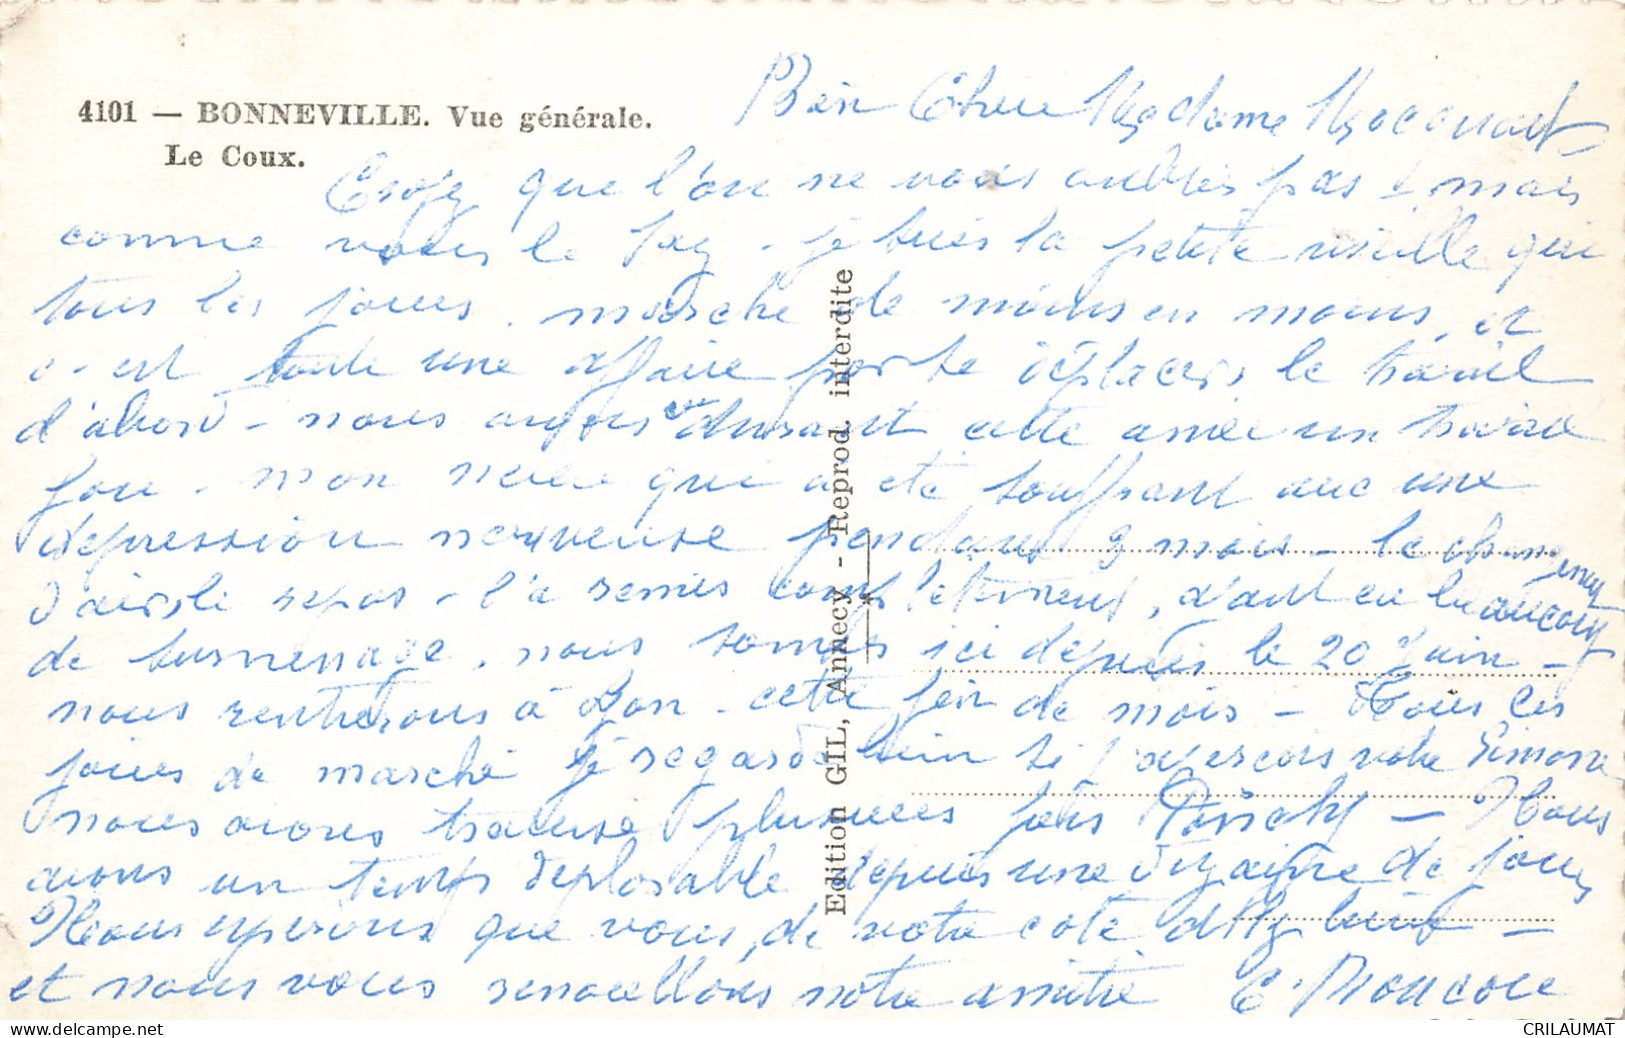 4101 — BONNEVILLE. Vue générale.
Le Coux.
Bien Chère Madame Macquart
Croyez que l'on ne vous oublies pas - mais
comme vous le - je suis la petite vieille qui
tous les jours, marche de moins en moins, et
c'est toute une affaire déplacer, le travail
d'abord - nous avons eu durant cette année un travail
fou - mon qui a été souffrant avec une
dépression nerveuse pendant 9 mois - le changement
d'air, le repos - l'a remis complètement, ayant eu beaucoup
de surmenage, nous sommes ici depuis le 20 Juin -
nous rentrerons à Lyon - cette fin de mois - Tous les
jours de marché je regarde bien si j'aperçois votre Simone
nous avons traversé plusieurs fois - Nous
avons un temps déplorable depuis une dizaine de jours
Nous espérons que vous, de votre coté allez bien -
et nous vous renouvellons notre amitié
Edition GIL, Annecy - Reprod. interdite
CRILAUMAT